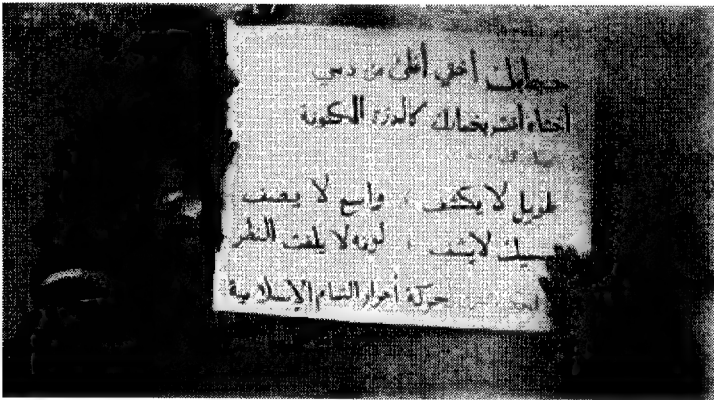 حجابك أختي أغلى من دمي
أختاه أنت بحجابك كالدرة المكنونة
طويل لا يكشف ، واسع لا يصف
سميك لا يشف ، لونه لا يلفت النظر
حركة أحرار الشام الإسلامية